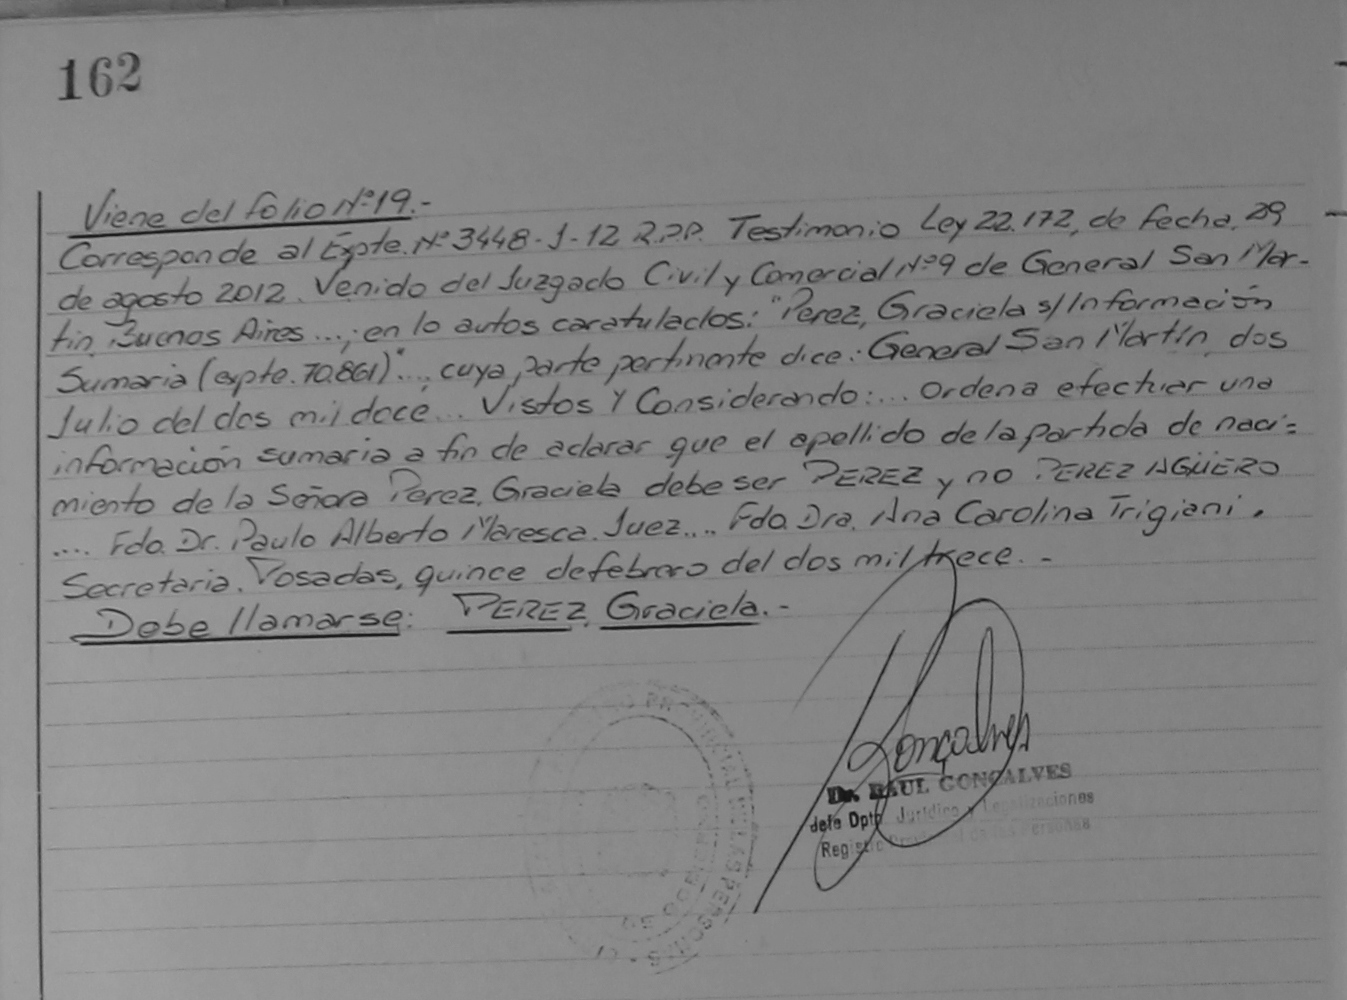 162
Viene del folio Nº19.-
Corresponde al Expte. Nº 3448-J-12 R.P.P. Testimonio Ley 22.172, de fecha, 29
de agosto 2012. Venido del Juzgado Civil y Comercial Nº9 de General San Mar-
tin Buenos Aires...; en lo autos caratulados: "Perez, Graciela s/Información
Sumaria (expte. 70.861)"..., cuya parte pertinente dice: General San Martín, dos
Julio del dos mil doce... Vistos Y Considerando:... Ordena efectuar una
información sumaria a fin de aclarar que el apellido de la partida de naci-
miento de la Señora Perez, Graciela debe ser PEREZ y no PEREZ AGÜERO
.... Fdo. Dr. Paulo Alberto Maresca. Juez... Fdo. Dra. Ana Carolina Trigiani.
Secretaria. Posadas, quince de febrero del dos mil trece.-
Debe llamarse: PEREZ, Graciela.-
Gonçalves
Dr. RAUL GONÇALVES
Jefe Dpto. Jurídico y Legalizaciones
Registro Provincial de las Personas